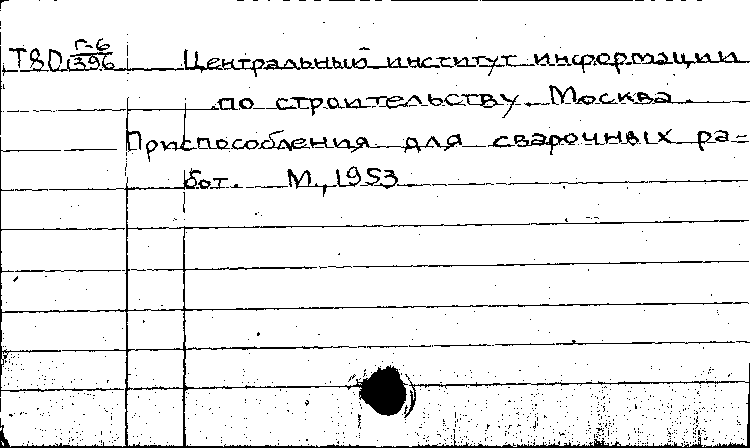 Т80 Г-6/1396 Центральный институт информации
по строительству. Москва.
Приспособления для сварочных ра=
бот. М., 1953